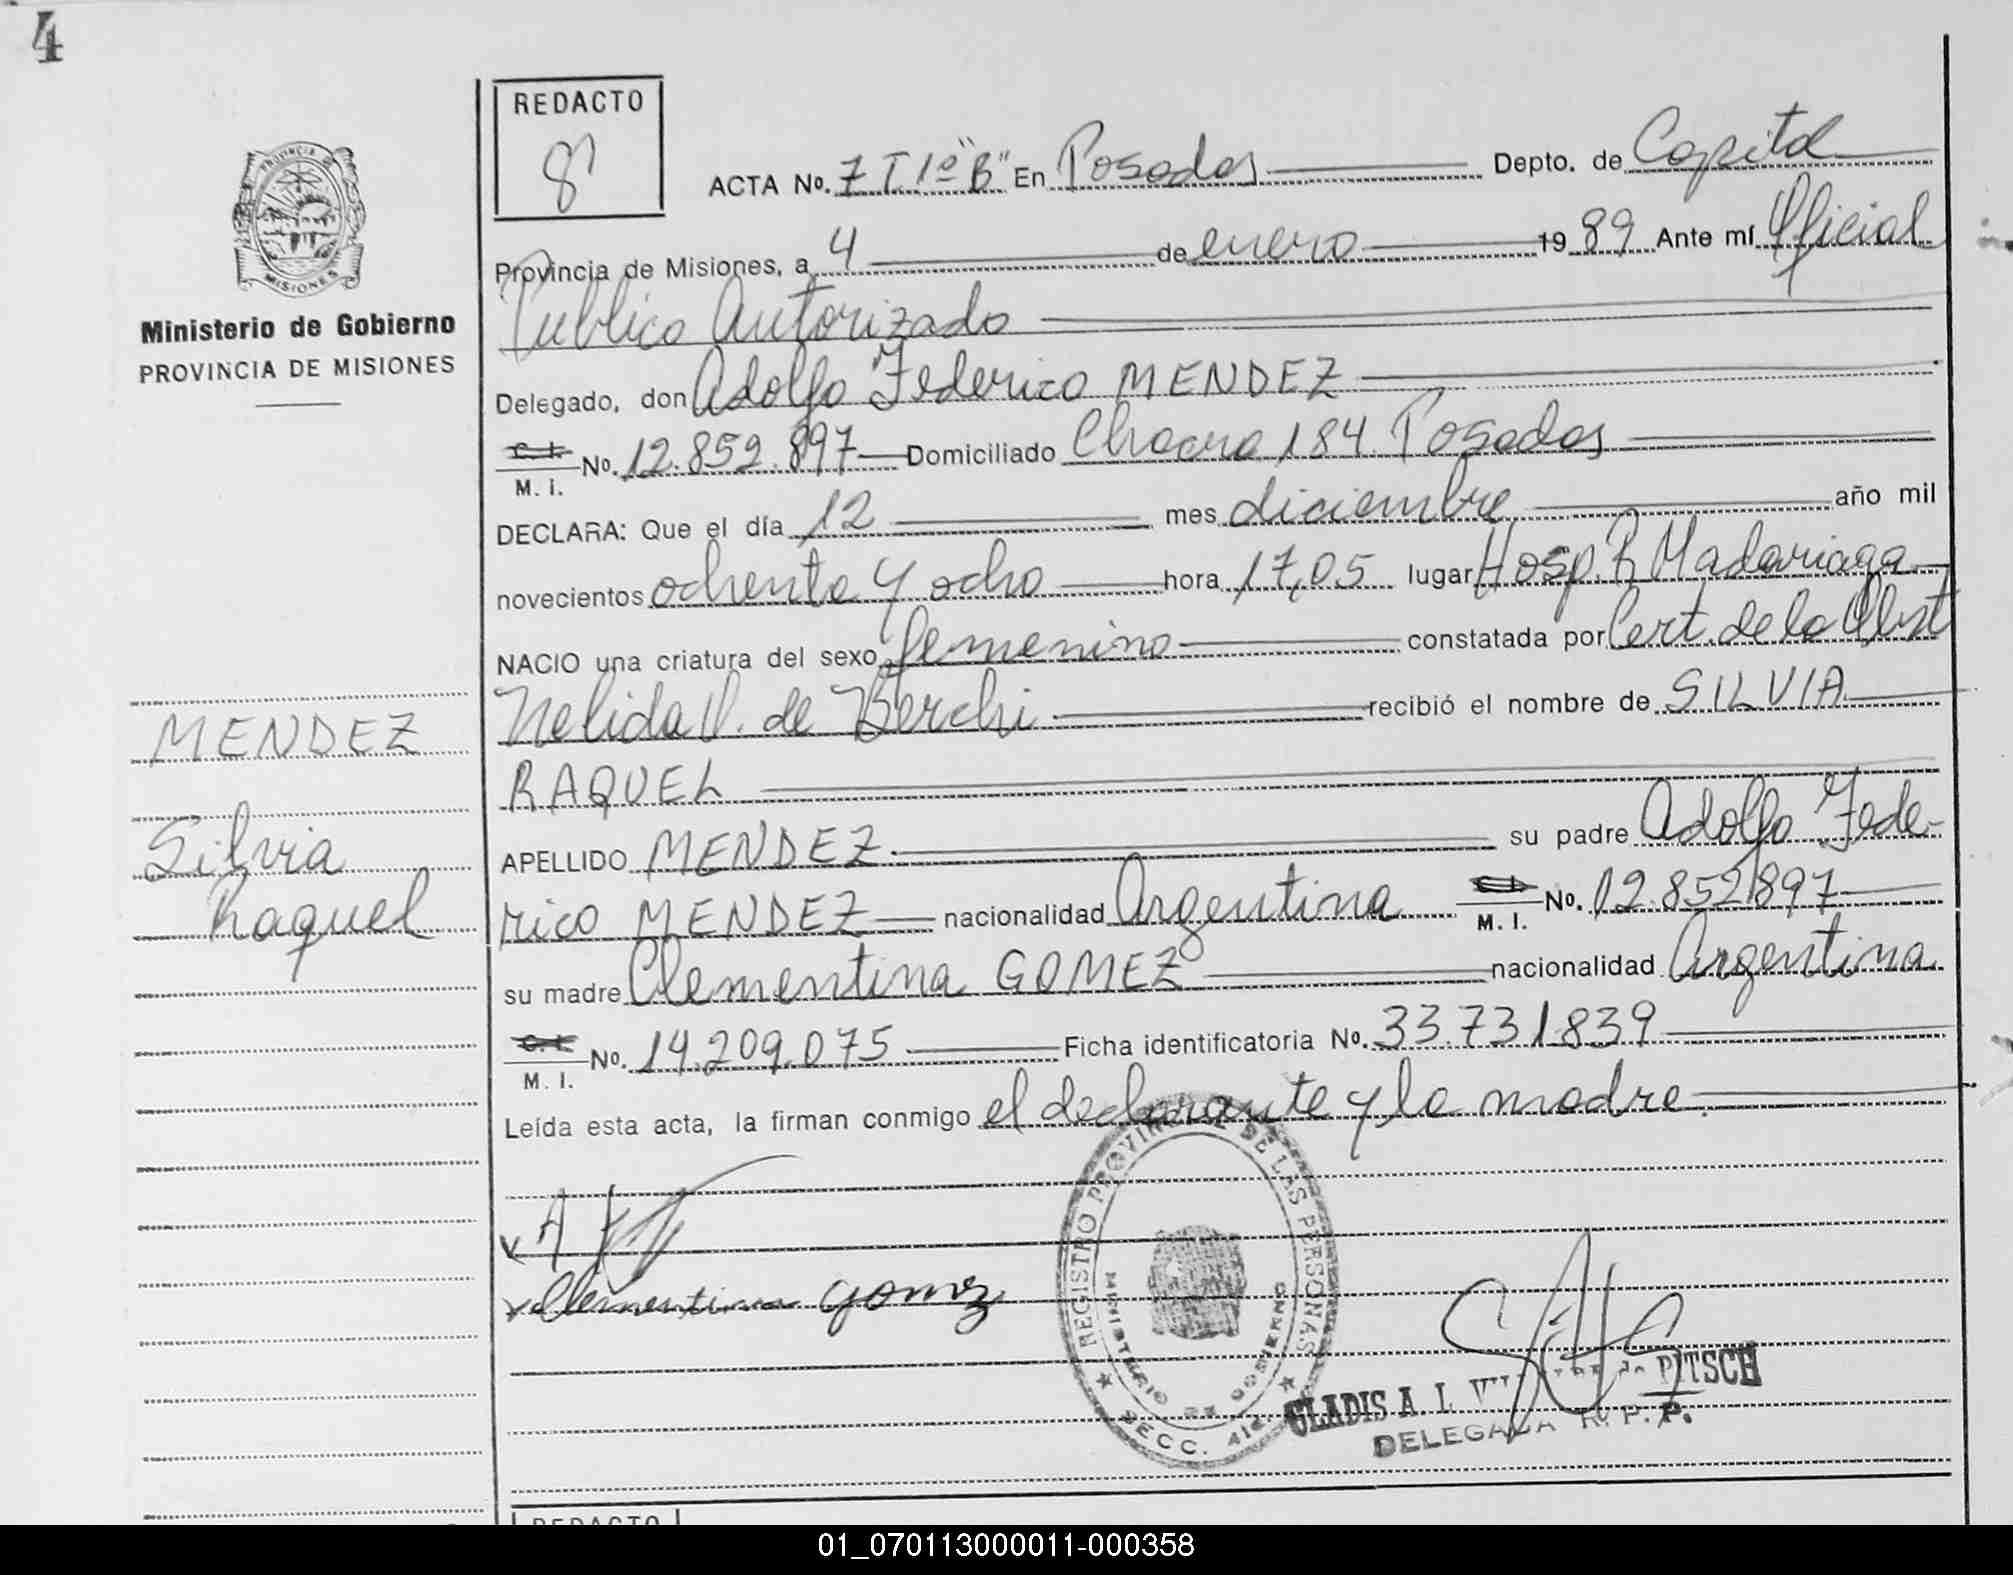 4
REDACTO
8
ACTA No. 7 T 1º "B" En Posadas Depto. de Capital
Provincia de Misiones, a 4 de enero 1989 Ante mí Oficial
Publico Autorizado
Delegado, don Adolfo Federico MENDEZ
C. I. No. 12.852.897 Domiciliado Chacra 184. Posadas
M. I.
DECLARA: Que el día 12 mes diciembre año mil
novecientos ochenta y ocho hora 17,05 lugar Hosp. R Madariaga
NACIO una criatura del sexo femenino constatada por Cert. de la Obst
Nelida V. de Berchi recibió el nombre de SILVIA
RAQUEL
APELLIDO MENDEZ su padre Adolfo Fede-
rico MENDEZ nacionalidad Argentina C. I. No. 12.852.897
M. I.
su madre Clementina GOMEZ nacionalidad Argentina
C. I. No. 14.209.075 Ficha identificatoria No. 33.731.839
M. I.
Leída esta acta, la firman conmigo el declarante y la madre.
Clementina gomez
Ministerio de Gobierno
PROVINCIA DE MISIONES
MENDEZ
Silvia
Raquel
PROVINCIA DE
MISIONES
REGISTRO PROVINCIAL DE LAS PERSONAS
MINISTERIO DE GOBIERNO
SECC. 4ta.
GLADIS A. I. PITSCH
DELEGADA R. P. P.
REDACTO
01_070113000011-000358